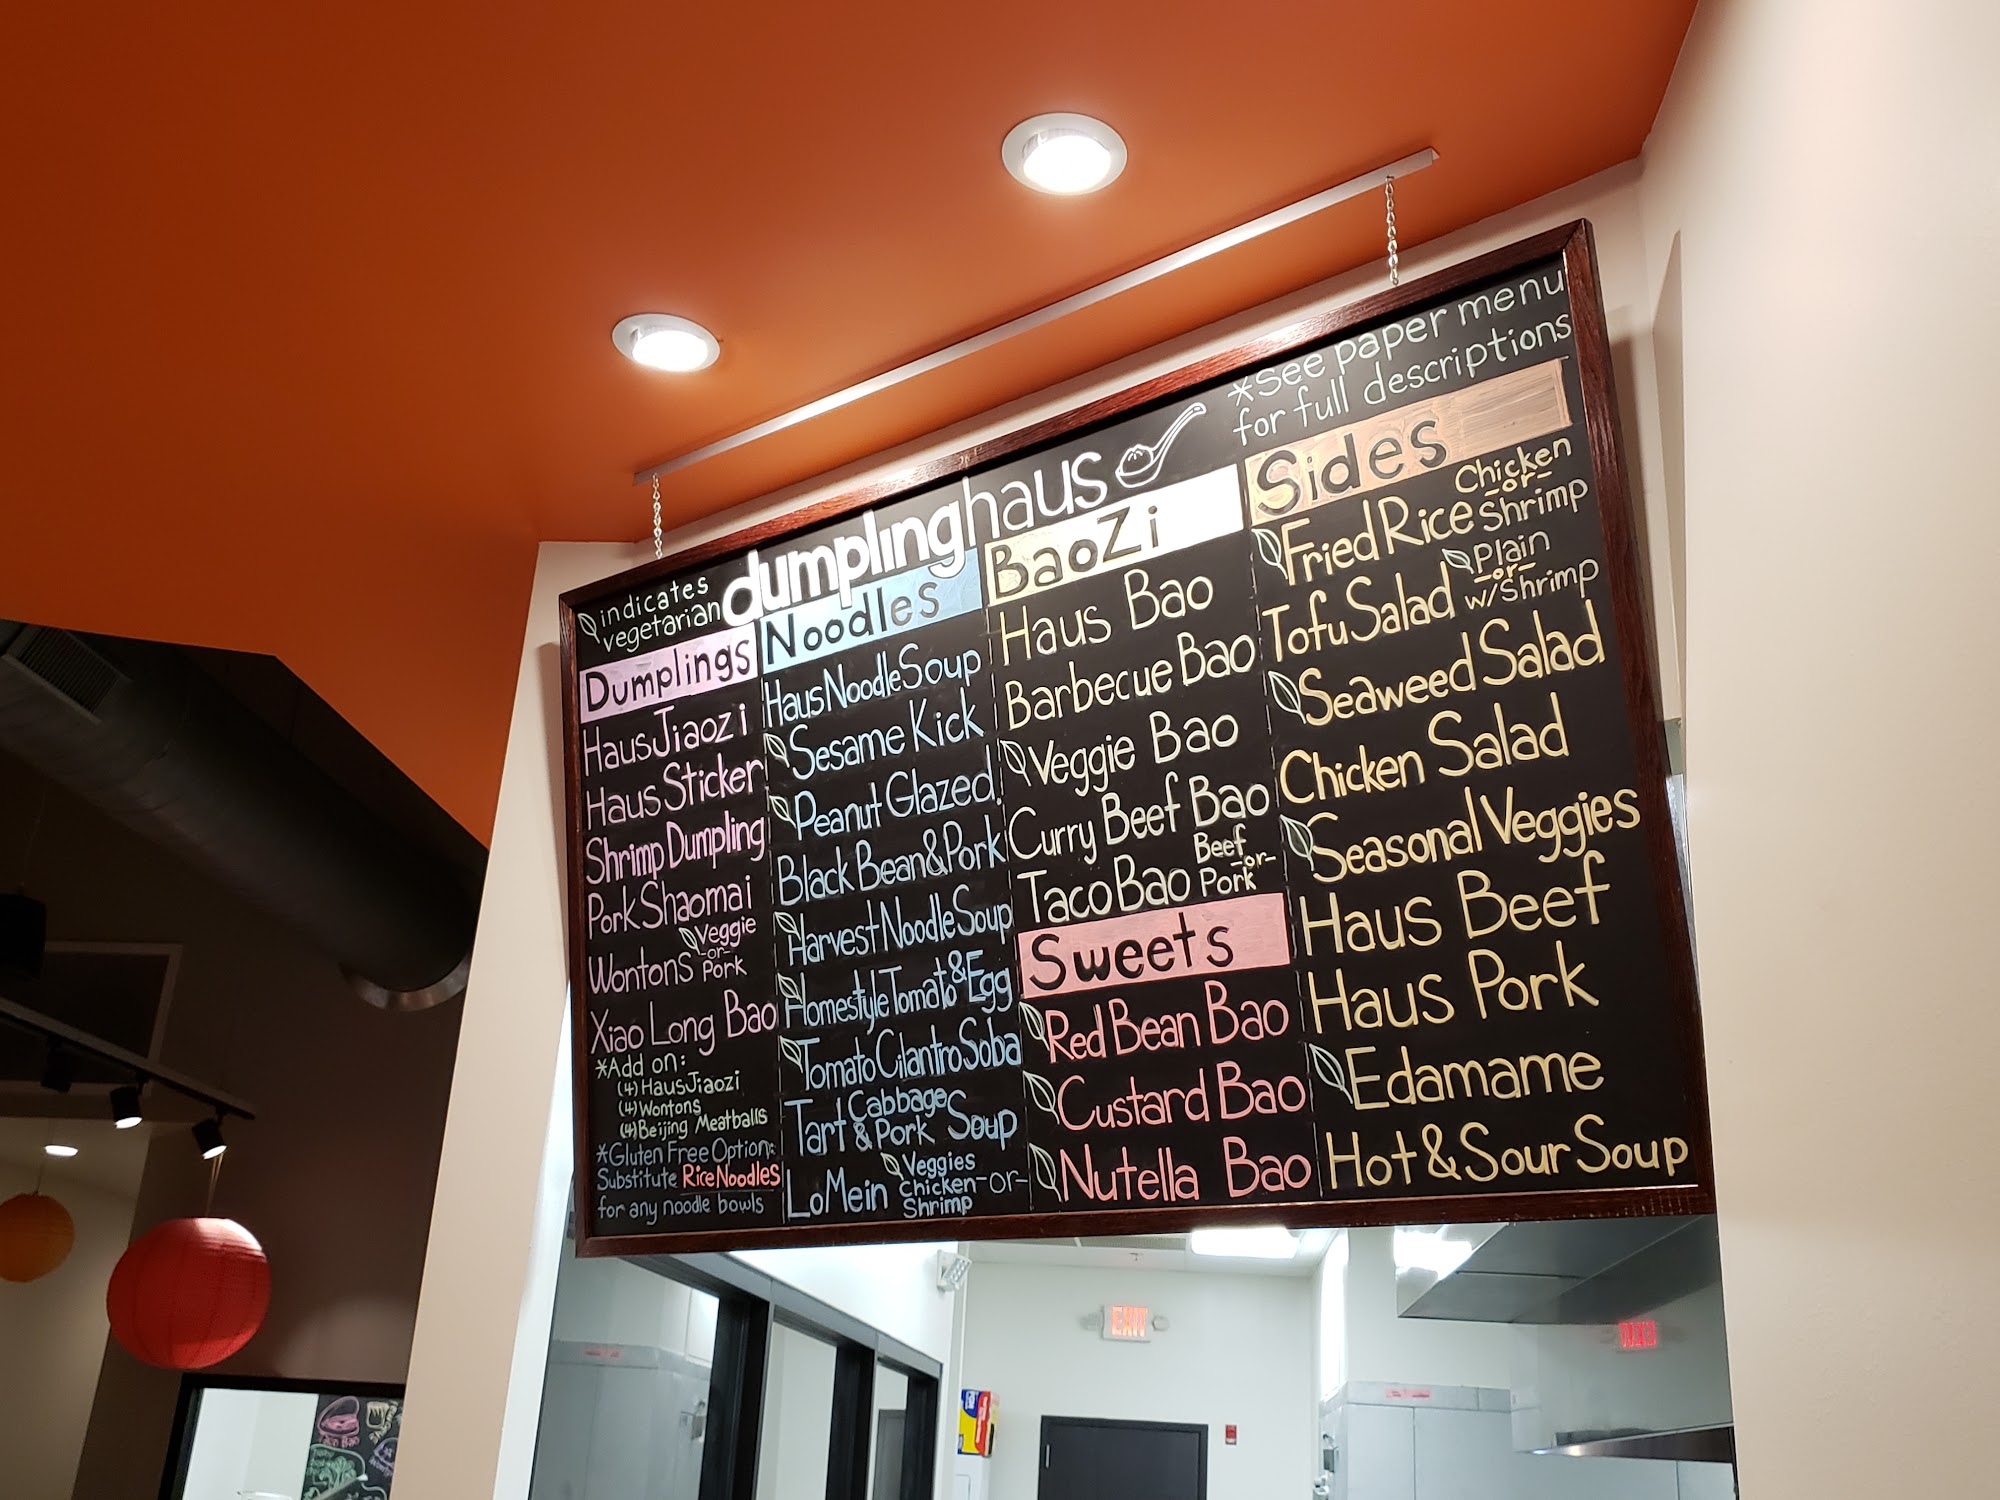 indicates
vegetarian
dumplinghaus
*See paper menu
for full descriptions
Dumplings
Haus Jiaozi
Haus Sticker
Shrimp Dumpling
Pork Shaomai
Wontons Veggie
-or-
Pork
Xiao Long Bao
*Add on:
(4) Haus Jiaozi
(4) Wontons
(4) Beijing Meatballs
*Gluten Free Option:
Substitute Rice Noodles
for any noodle bowls
Noodles
Haus Noodle Soup
Sesame Kick
Peanut Glazed
Black Bean & Pork
Harvest Noodle Soup
Homestyle Tomato & Egg
Tomato Cilantro Soba
Tart Cabbage & Pork Soup
LoMein Veggies
Chicken -or-
Shrimp
BaoZi
Haus Bao
Barbecue Bao
Veggie Bao
Curry Beef Bao
Taco Bao Beef
-or-
Pork
Sweets
Red Bean Bao
Custard Bao
Nutella Bao
Sides
Fried Rice Chicken
-or-
Shrimp
Tofu Salad Plain
-or-
w/Shrimp
Seaweed Salad
Chicken Salad
Seasonal Veggies
Haus Beef
Haus Pork
Edamame
Hot & Sour Soup
EXIT
Taco Bao